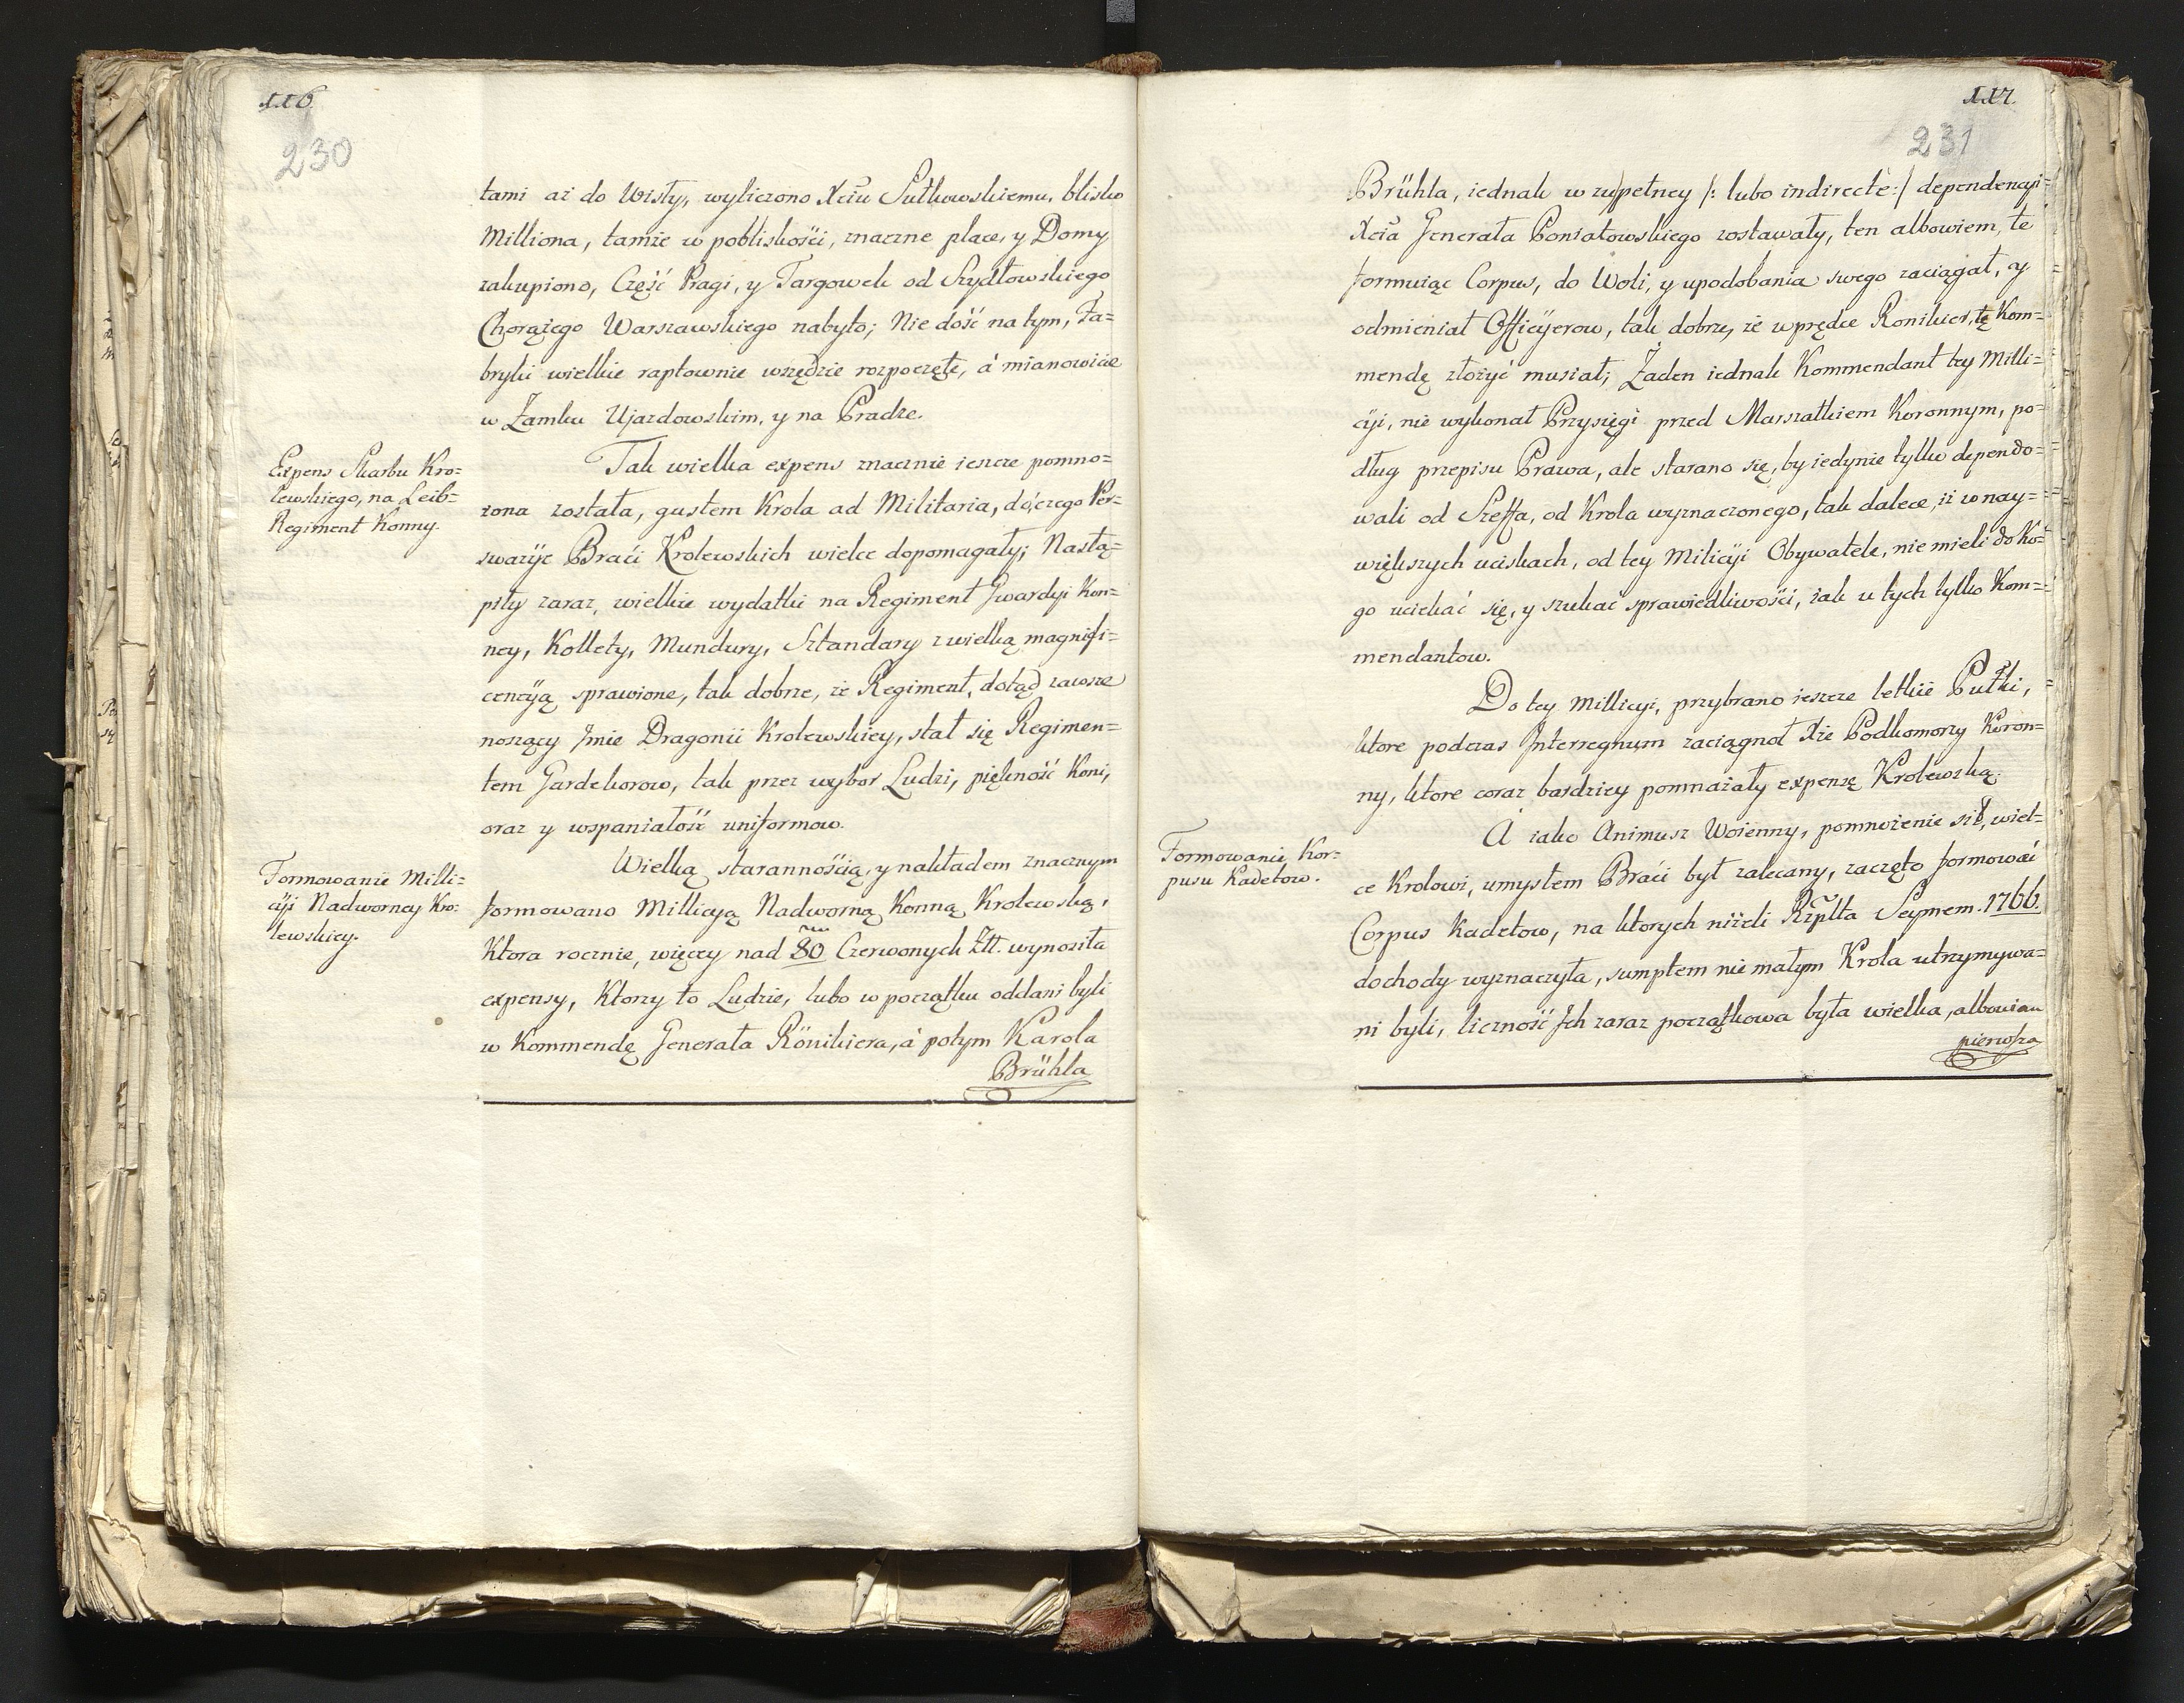 116.
230
tami aż do Wisły, wyliczono Xciu Sułkowskiemu, blisko
Milliona, tamże w pobliskości, znaczne place, y Domy
zakupiono, Część Pragi, y Targowek od Szydłowskiego
Chorążego Warszawskiego nabyto; Nie dość na tym, Fa=
bryki wielkie raptownie wszędzie rozpoczęte, á mianowicie
w Zamku Ujazdowskim, y na Pradze.
Expens Skarbu Kro=
lewskiego, na Leib=
Regiment Konny.
Tak wielka expens znacznie ieszcze pomno=
zona została, gustem Krola ad Militaria, do czego Per=
swazye Braći Krolewskich wielce dopomagały; Nastą=
piły zaraz, wielkie wydatki na Regiment Gwardyi Kon=
ney, Kollety, Mundury, Sztandary z wielką magnifi=
cencyą sprawione, tak dobrze, że Regiment, dotąd zawsze
noszący Jmie Dragonii Krolewskiey, stał się Regimen=
tem Gardekorow, tak przez wybor Ludzi, piękność Koni,
oraz y wspaniałość uniformow.
Formowanie Milli=
cÿi Nadworney Kro=
lewskiey.
Wielką starannośćią, y nakładem znacznym
formowano Millicyą Nadworną Konną Krolewską,
Ktora rocznie, więcey nad 80 Czerwonych Złł. wynosiła
expensy, Ktorzy to Ludzie, lubo w początku oddani byli
w Kommendę Generała Rönikiera, á potym Karola
Brühla
117.
231
Brühla, iednak w zupełney /: lubo indirectè :/ dependencyi
Xcia Generała Poniatowskiego zostawały, ten albowiem, te
formuiąc Corpus, do Woli, y upodobania swego zaciągał, y
odmieniał Officÿerow, tak dobrze, że wprędce Ronikier, tę Kom=
mendę złożyć musiał; Żaden iednak Kommendant tey Milli=
cÿi, nie wykonał Przysięgi przed Marszałkiem Koronnym, po=
dług przepisu Prawa, ale starano się, by iedynie tylko dependo=
wali od Szeffa, od Krola wyznaczonego, tak dalece, iż w nay=
większych uciskach, od tey Milicÿi Obywatele, nie mieli do Ko=
go uciekać się, y szukać sprawiedliwości, iak u tych tylko Kom=
mendantow.
Do tey Millicyi, przybrano ieszcze letkie Pułki,
ktore podczas Jnterregnum zaciągnoł Xże Podkomorzy Koron=
ny, ktore coraz bardziey pomnażały expensę Krolewską.
Formowanie Kor=
pusu Kadetow.
A iako Animusz Woienny, pomnożenie sił, wiel=
ce Krolowi, umysłem Braći był zalecany, zaczęto formować
Corpus Kadetow, na ktorych niżeli Rzplta Seymem. 1766.
dochody wyznaczyła, sumptem nie małym Krola utrzymywa=
ni byli, liczność Jch zaraz początkowa była wielka, albowiem
pierwsza